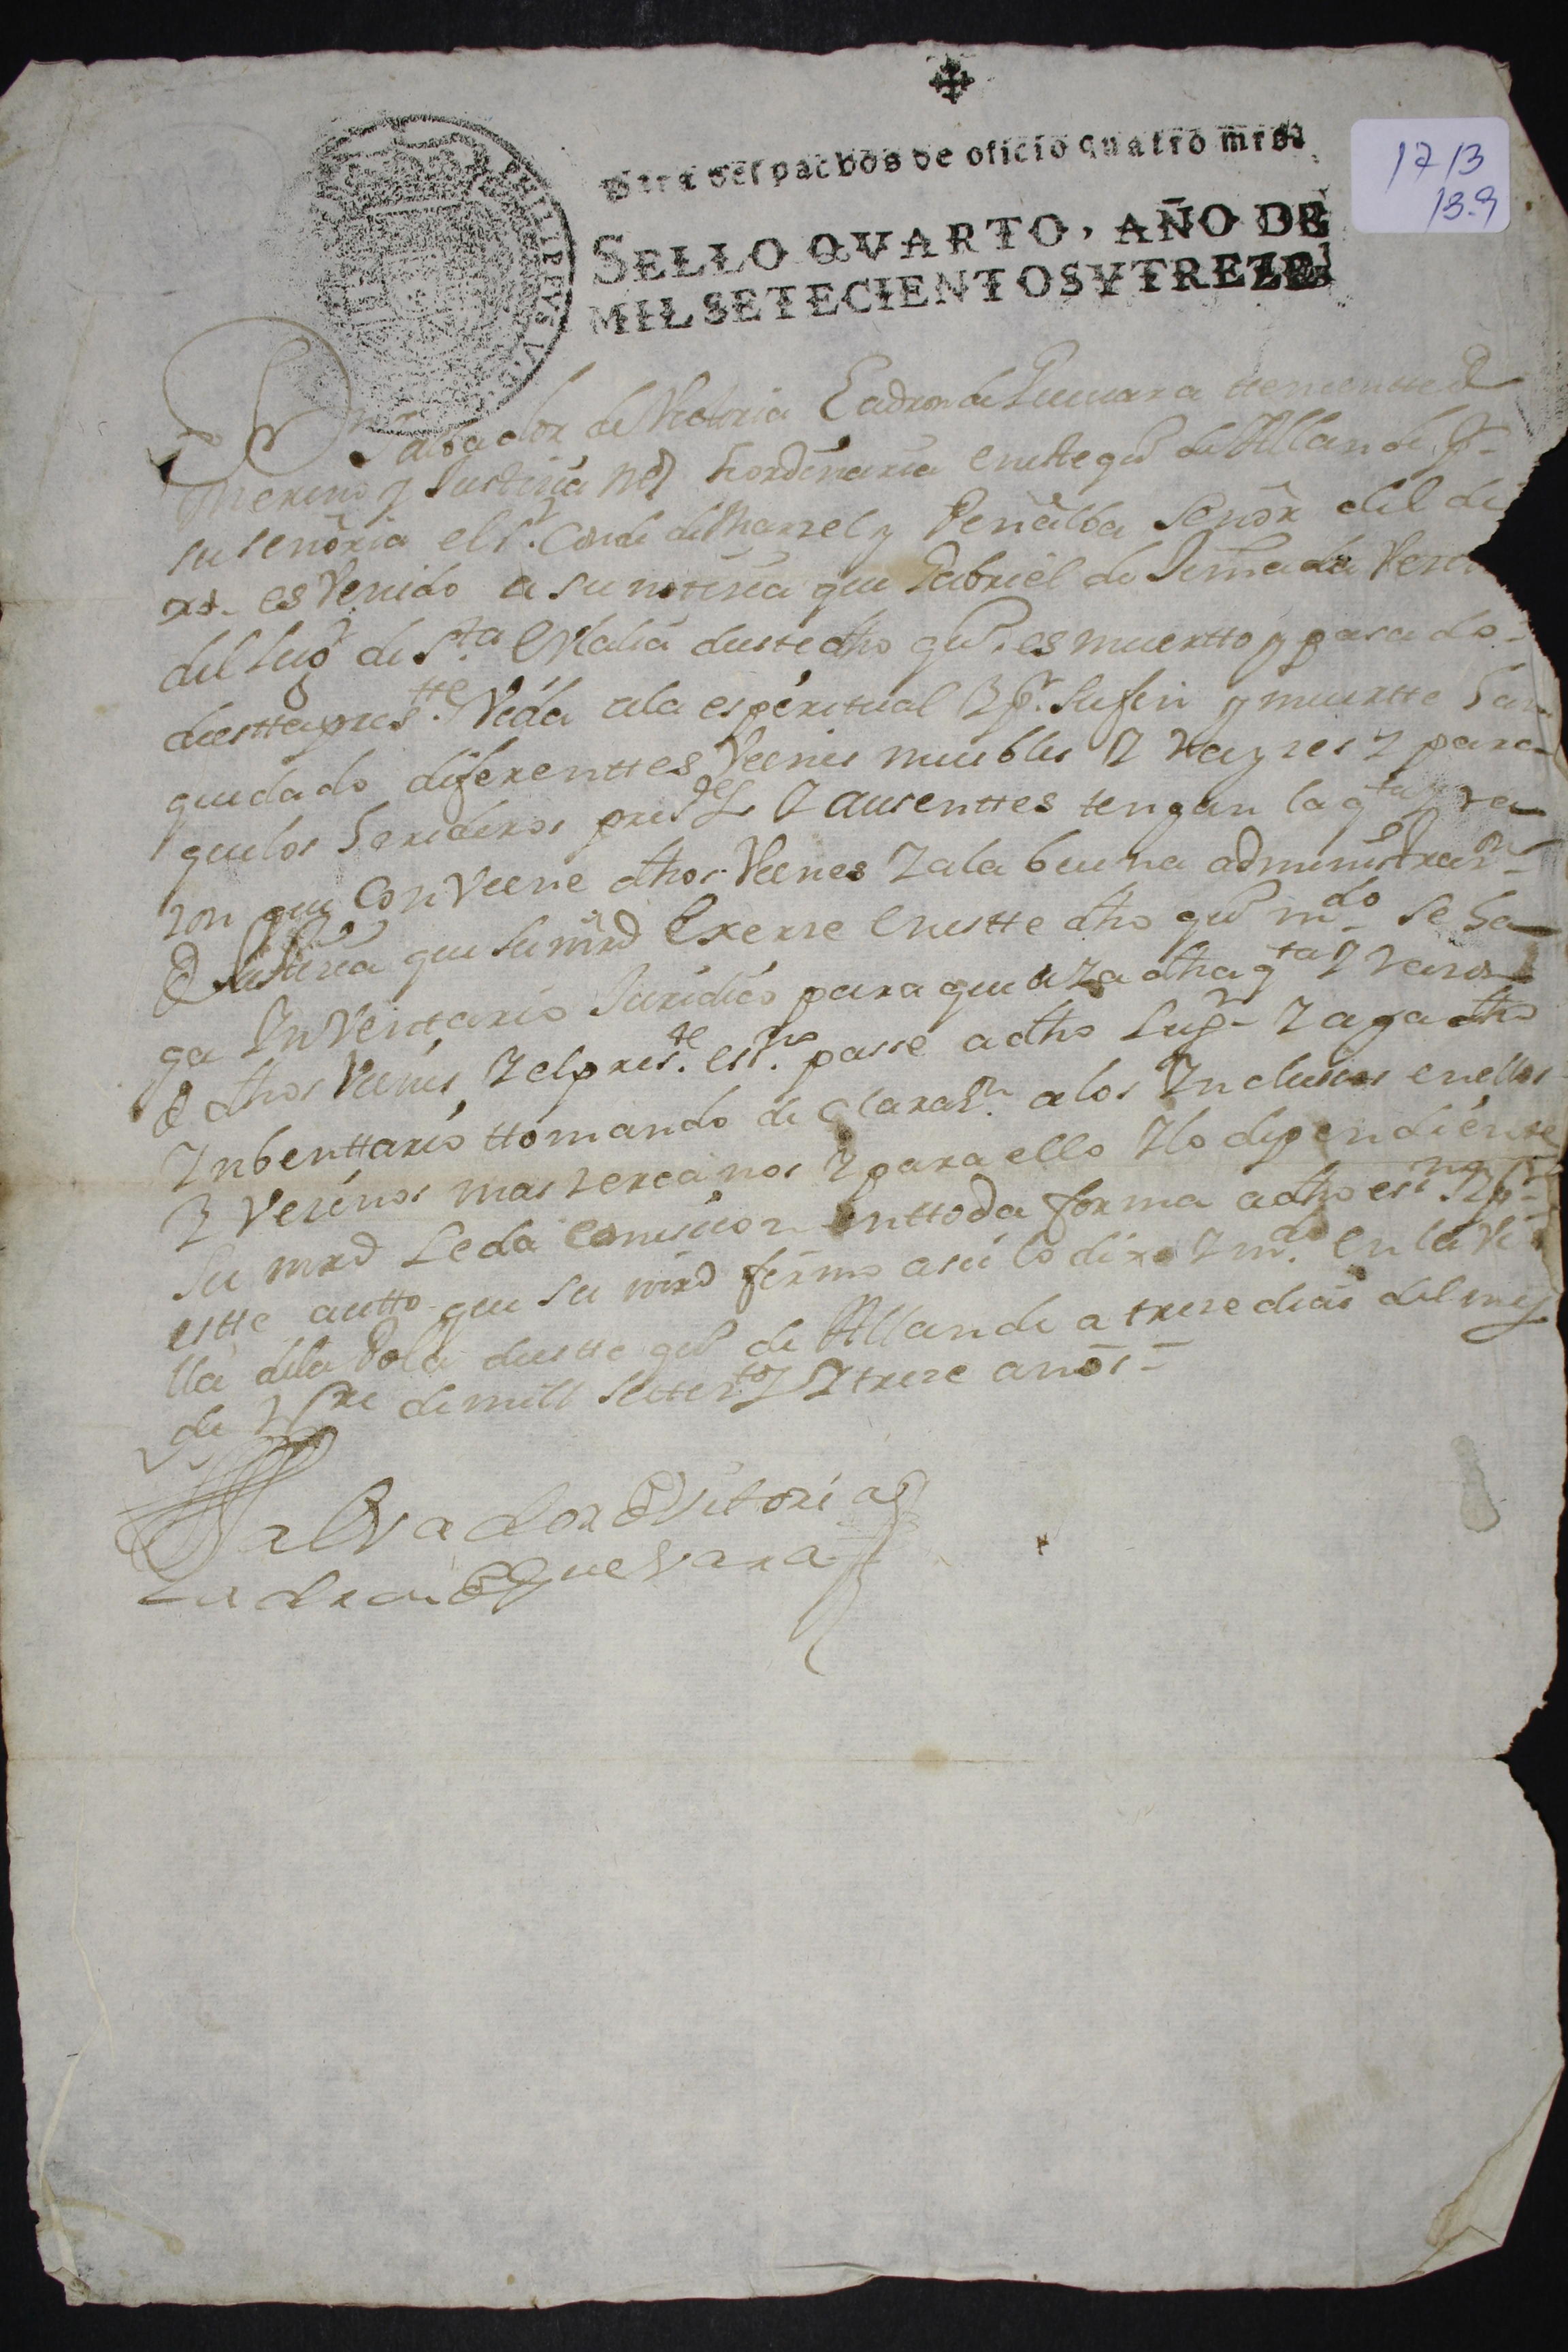 Para despachos de oficio quatro mrs.
SELLO QVARTO, AÑO DE
MIL SETECIENTOS Y TREZE.
1713
13.9
Dn Salbador de Victoria Ladron de Guevara tteniente de
Merino y Justicia hordinaria en este qº de Allande pr
su señoria el sr. Conde de Marzel y Peñalba señor del di
es Venido a su noticia que Gabriel de Veci
del lugr de Sta Olalia deste dho qº. es muertto y pasado
desta prestte. Vida ala espiritual Y pr. su fin y muertte han
quedado diferenttes Vienes muebles Y Rayzes Y para
quelos herederos Y ausenttes tengan la qta y ra
zon que Conviene dhos Vienes Y ala buena administrazn
de Justicia que su mrd Exerze en estte dho qº mdo se ha
ga Inventtario Juridico para que aza dha qta Y razon
de dhos Vienes, Y el preste. essno. passe a dho lugr Y aga dho
Ynbenttario ttomando declarazn. a los Ynclusos en ellos
Y Vecinos mas zercanos Y para ello Y lo dependiente
Su mrd le da Comision en ttoda forma a dho essno Y pr
estte autto que su mrd firmo asi lo dixo Y mdo. en la Vi
lla dela Pola deste qº de Allande a treze dias del mes
de Sre de mill settezttos Y treze anõs
Salvador de Vitoria
Ladron de Guevara